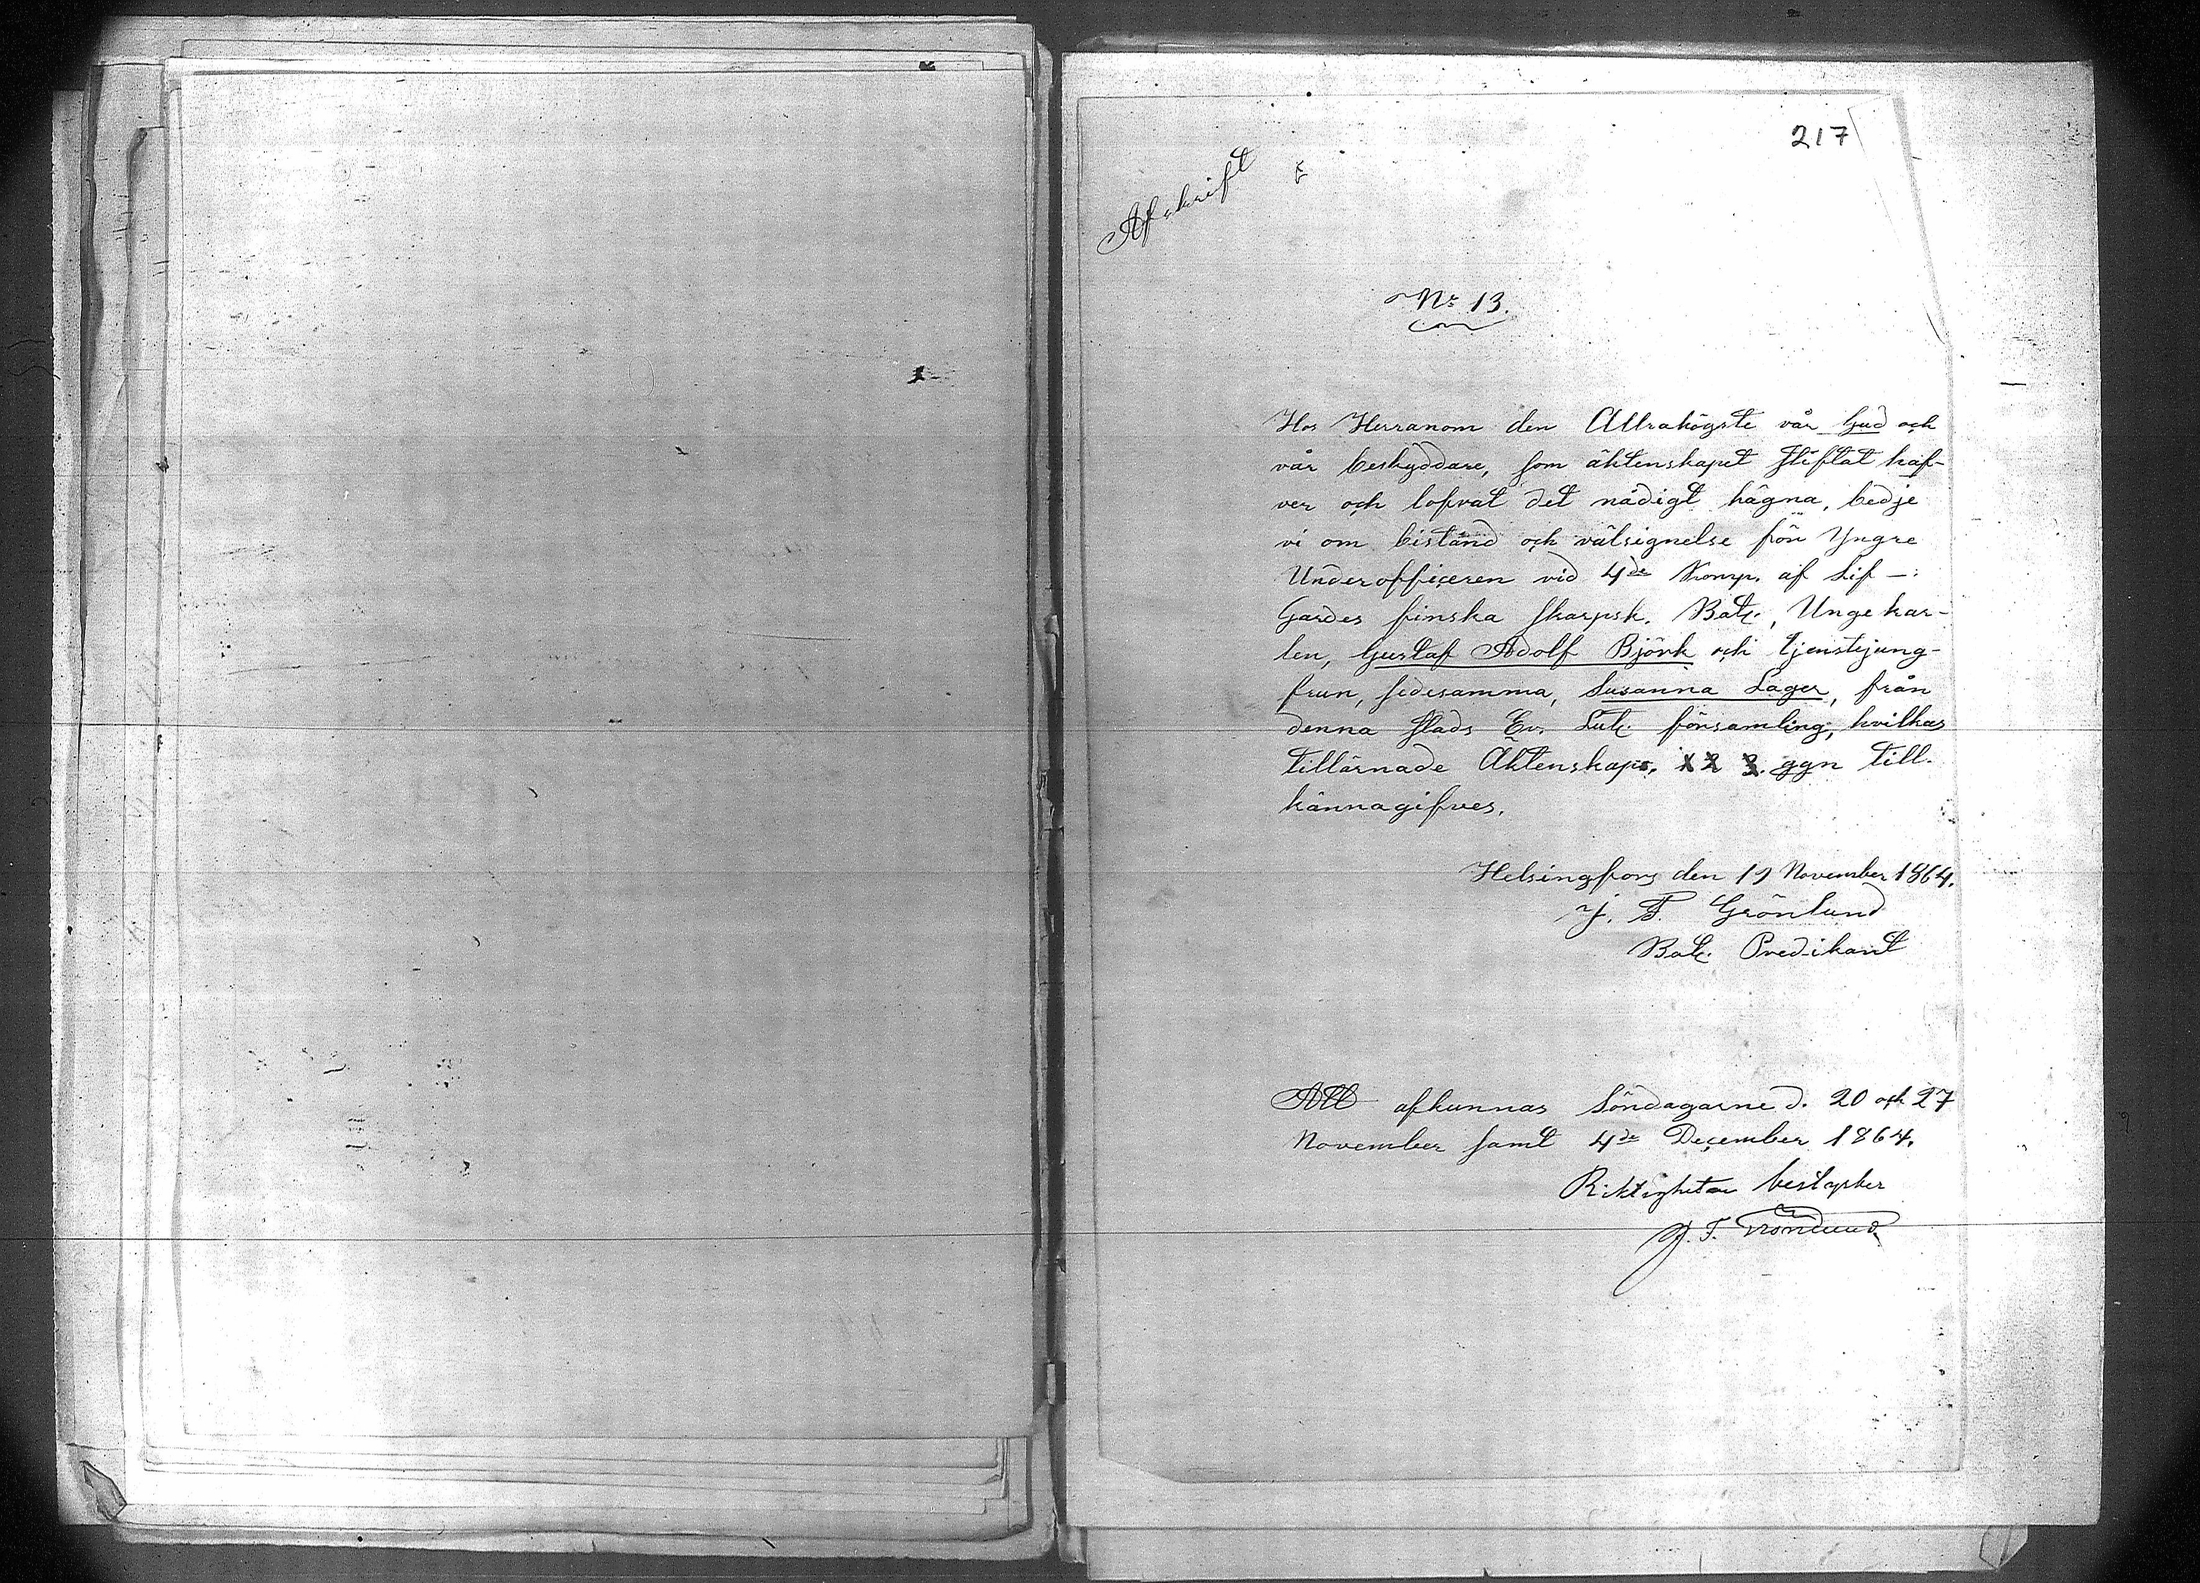 217
Afskrift
No 13.
Hos Herranom den Allrahögste vår Gud och
vår beskyddare, som äktenskapet stiftat haf-
ver och lofvat det nådigt hägna, bedje
vi om bistånd och välsignelse för Yngre
Underofficeren vid 4de Komp. af Lif-
Gardes finska skarpsk. Batl., Ungekar-
len, Gustaf Adolf Björk och tjenstejung-
frun, sedesamma, Susanna Lager, från
denna stads Ev. Luth. församling, hvilkas
tillärnade Äktenskap, 1 2 3. ggn till-
kännagifves.
Helsingfors den 19 November 1864.
J. F. Grönlund
Batl. Predikant
Att afkunnas Söndagarne d. 20 och 27
November samt 4de December 1864.
Riktigheten bestyrker
J. F. Grönlund.